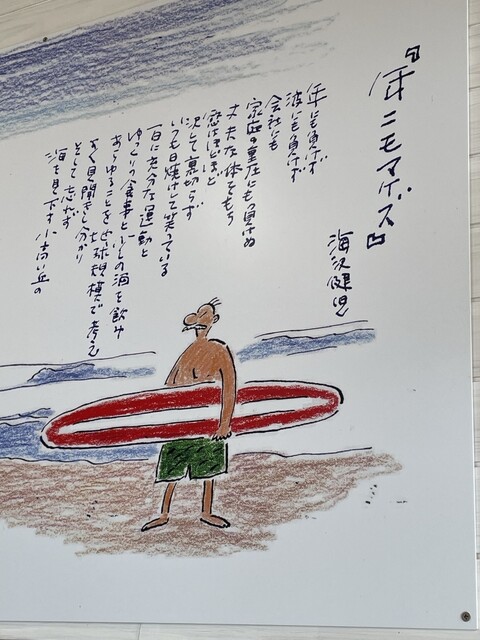 『年ニモマケズ』
海沢健児
年にも負けず
波にも負けず
会社にも
家庭の重圧にも負けぬ
丈夫な体をもち
欲はほどほど
決して裏切らず
いつも日焼けして笑っている
一日に充分な運動と
ゆっくり食事と少しの酒を飲み
あらゆることを地球規模で考え
よく見聞きし分かり
そして忘れず
海を見下す小高い丘の